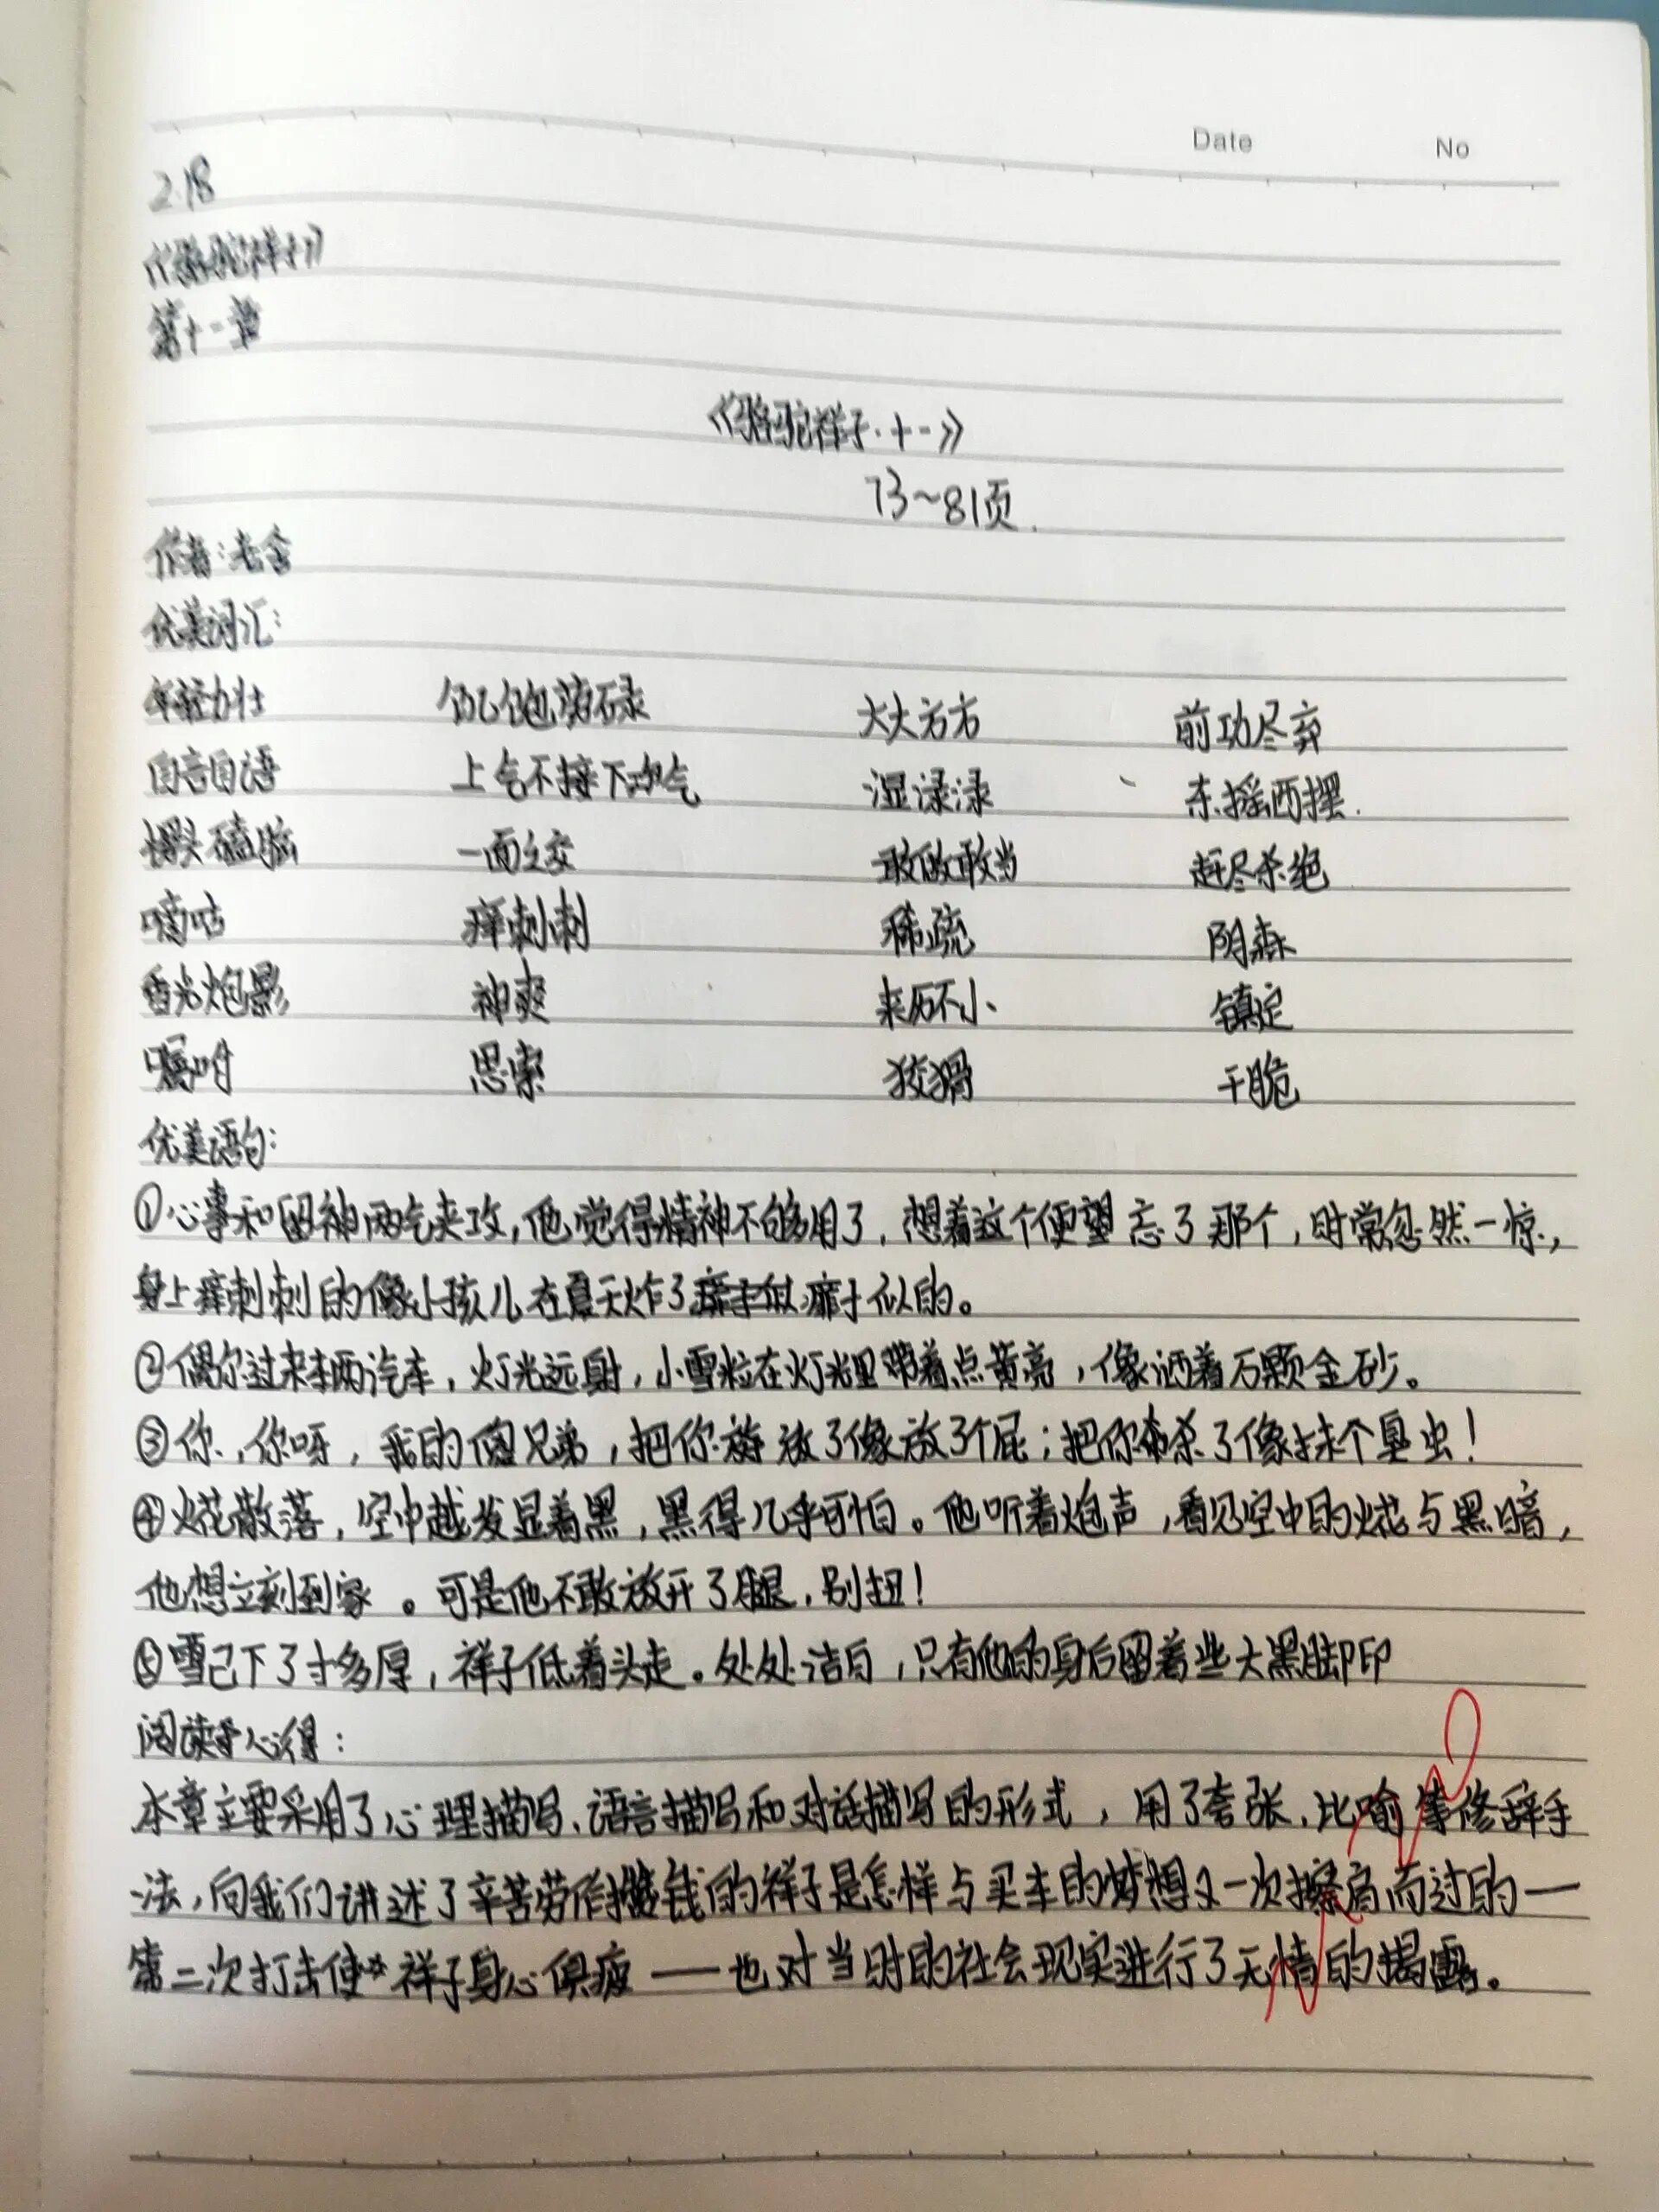 Date No
2.18
《骆驼祥子》
第十一章
《骆驼祥子·十一》
73~81页.
作者:老舍
优美词汇:
年轻力壮 饥饱劳碌 大大方方 前功尽弃
自言自语 上气不接下气 湿渌渌 东摇西摆.
馒头磕脑 一面之交 敢做敢当 赶尽杀绝
嘀咕 痒刺刺 稀疏 阴森
香光炮影 神爽 来历不小 镇定
嘱咐 思索 狡猾 干脆
优美语句:
①心事和留神两气夹攻,他觉得精神不够用了,想着这个便忘了那个,时常忽然一惊,
身上痒刺刺的像小孩儿在夏天炸了痱子似的。
②偶尔过来车两汽车,灯光远射,小雪粒在灯光里带着点黄亮,像洒着万颗金砂。
③你,你呀,我的傻兄弟,把你放了像放了个屁;把你杀了像抹个臭虫!
④火花散落,空中越发显着黑,黑得几乎可怕。他听着炮声,看见空中的火花与黑暗,
他想立刻到家。可是他不敢放开了腿,别扭!
⑤雪已下了寸多厚,祥子低着头走。处处洁白,只有他的身后留着些大黑脚印
阅读心得:
本章主要采用了心理描写、语言描写和对话描写的形式,用了夸张、比喻等修辞手
法,向我们讲述了辛苦劳作攒钱的祥子是怎样与买车的梦想又一次擦肩而过的——
第二次打击使祥子身心俱疲——也对当时的社会现实进行了无情的揭露。